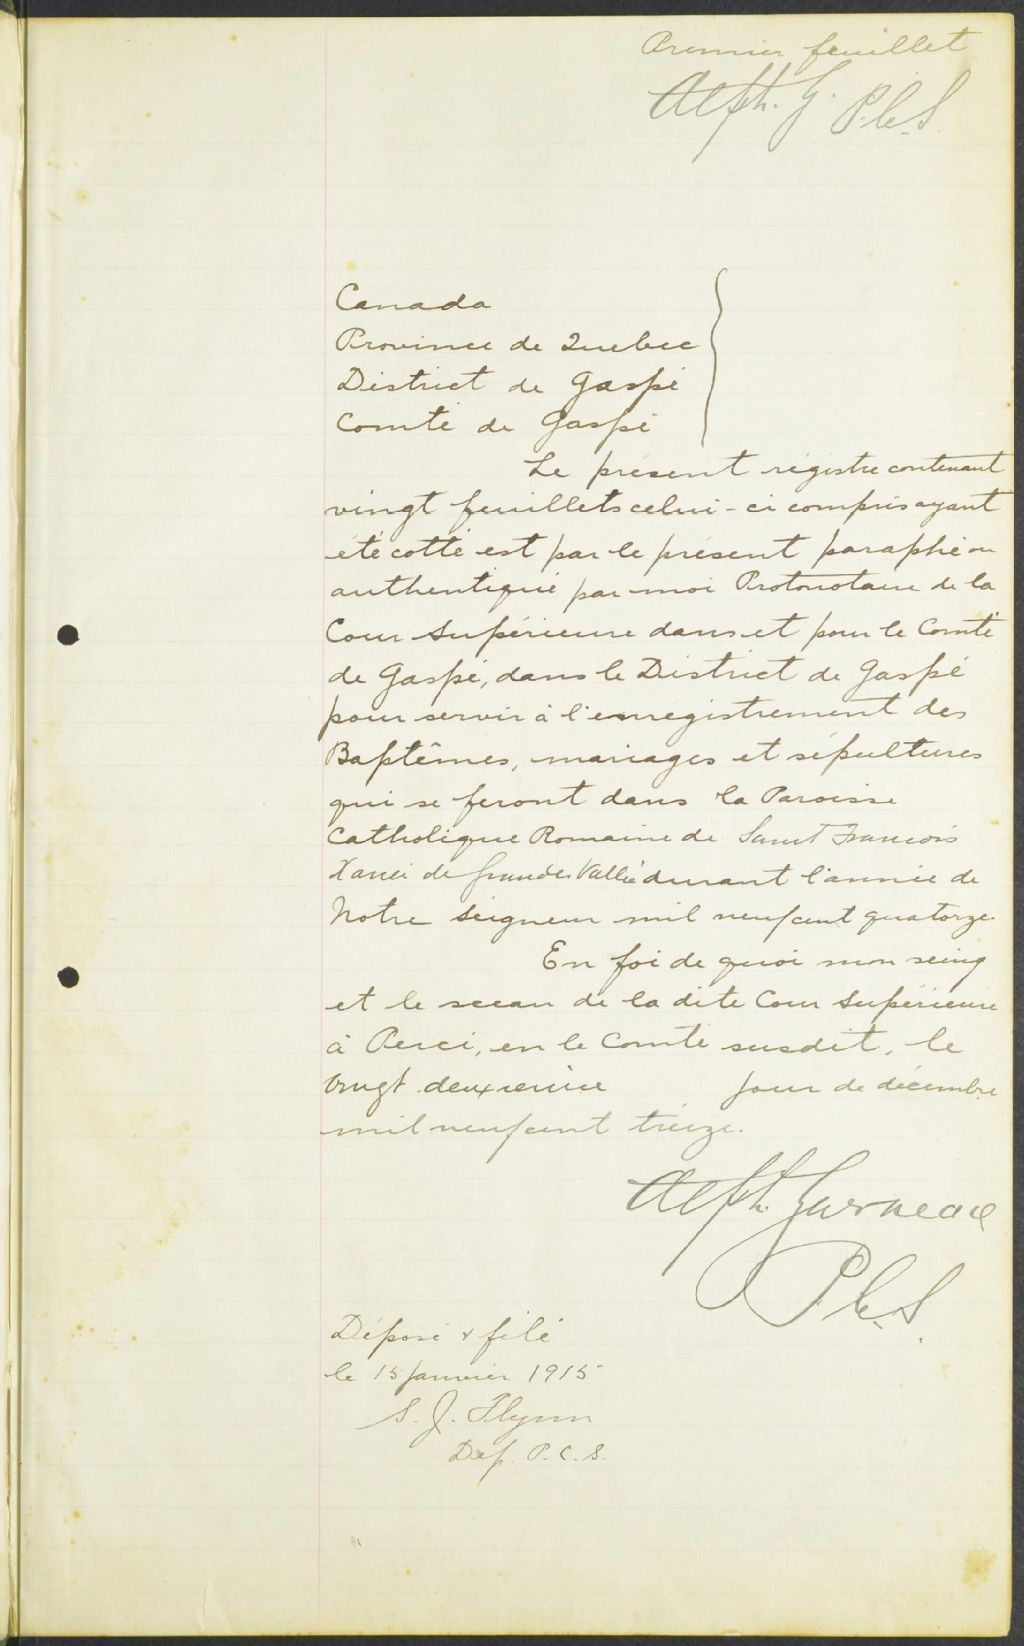 Premier feuillet
Alph. G. P.C.S.
Canada
Province de Quebec
District de Gaspé
Comté de Gaspé
Le présent régistre contenant
vingt feuillets celui-ci compris ayant
été cotté est par le présent paraphé ou
authentiqué par moi Protonotaire de la
Cour Supérieure dans et pour le Comté
de Gaspé, dans le District de Gaspé
pour servir à l'enregistrement des
Baptêmes, mariages et sépultures
qui se feront dans la Paroisse
Catholique Romaine de Saint François
Xavier de Grande Vallée durant l'année de
Notre Seigneur mil neuf cent quatorze.
En foi de quoi mon seing
et le sceau de la dite Cour Supérieure
à Percé, en le Comté susdit, le
vingt deuxième jour de décembre
mil neuf cent treize.
Alph. Garneau
P.C.S.
Déposé & filé
le 15 Janvier 1915
S. J. Flynn
Dep. P.C.S.